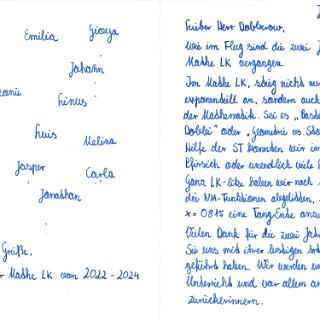 Emilia Giorga
Johann
Linus
Luis Melina
Jasper Carla
Jonathan
Grüße,
Mathe LK von 2022 - 2024
Lieber Herr
wie im Flug sind die zwei
Mathe LK vergangen.
Im Mathe LK, stieg nicht nur
exponentiell an, sondern auch
der Mathematik. Sei es
oder "Geometrie vs. Sto
Hilfe der ST konnten wir im
Pfirsich oder unendlich viele
Ganz LK-like haben wir noch
der -Funktionen abgebissen,
x = 0815 eine Tangente
Vielen Dank für die zwei Jah
Sie uns mit ihrer lustigen
geführt haben. Wir werden
Unterricht und vor allem an
zurückerinnern.